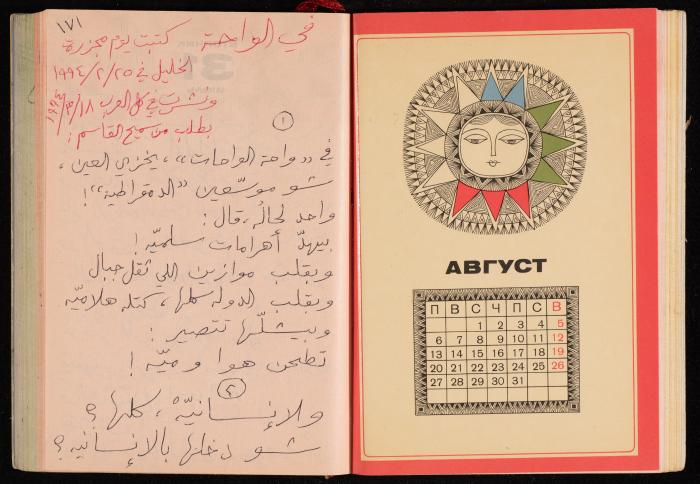 ١٧١
في الواحة كتبت يوم مجزرة
الخليل في ١٩٩٤/٢/٢٥
ونشرت في كل العرب ١٩٩٤/٣/١٨
بطلب من سميح القاسم :
١
في "واحة الواحات"، يخزي العين،
شو موسّعين "الدمقراطية"!
واحد لحاله، قال:
بيهدّ أهرامات سلميّه!
وبقلب موازين اللي ثقل جبال
وبقلب الدوله كلها، كتله هلاميّه
وبيشلّها تتصير:
تطحن هوا وميّه!
٢
ولإنسانيّه، كلها؟
شو دخلها بالإنسانيه؟
АВГУСТ
П В С Ч П С В
1 2 3 4 5
6 7 8 9 10 11 12
13 14 15 16 17 18 19
20 21 22 23 24 25 26
27 28 29 30 31